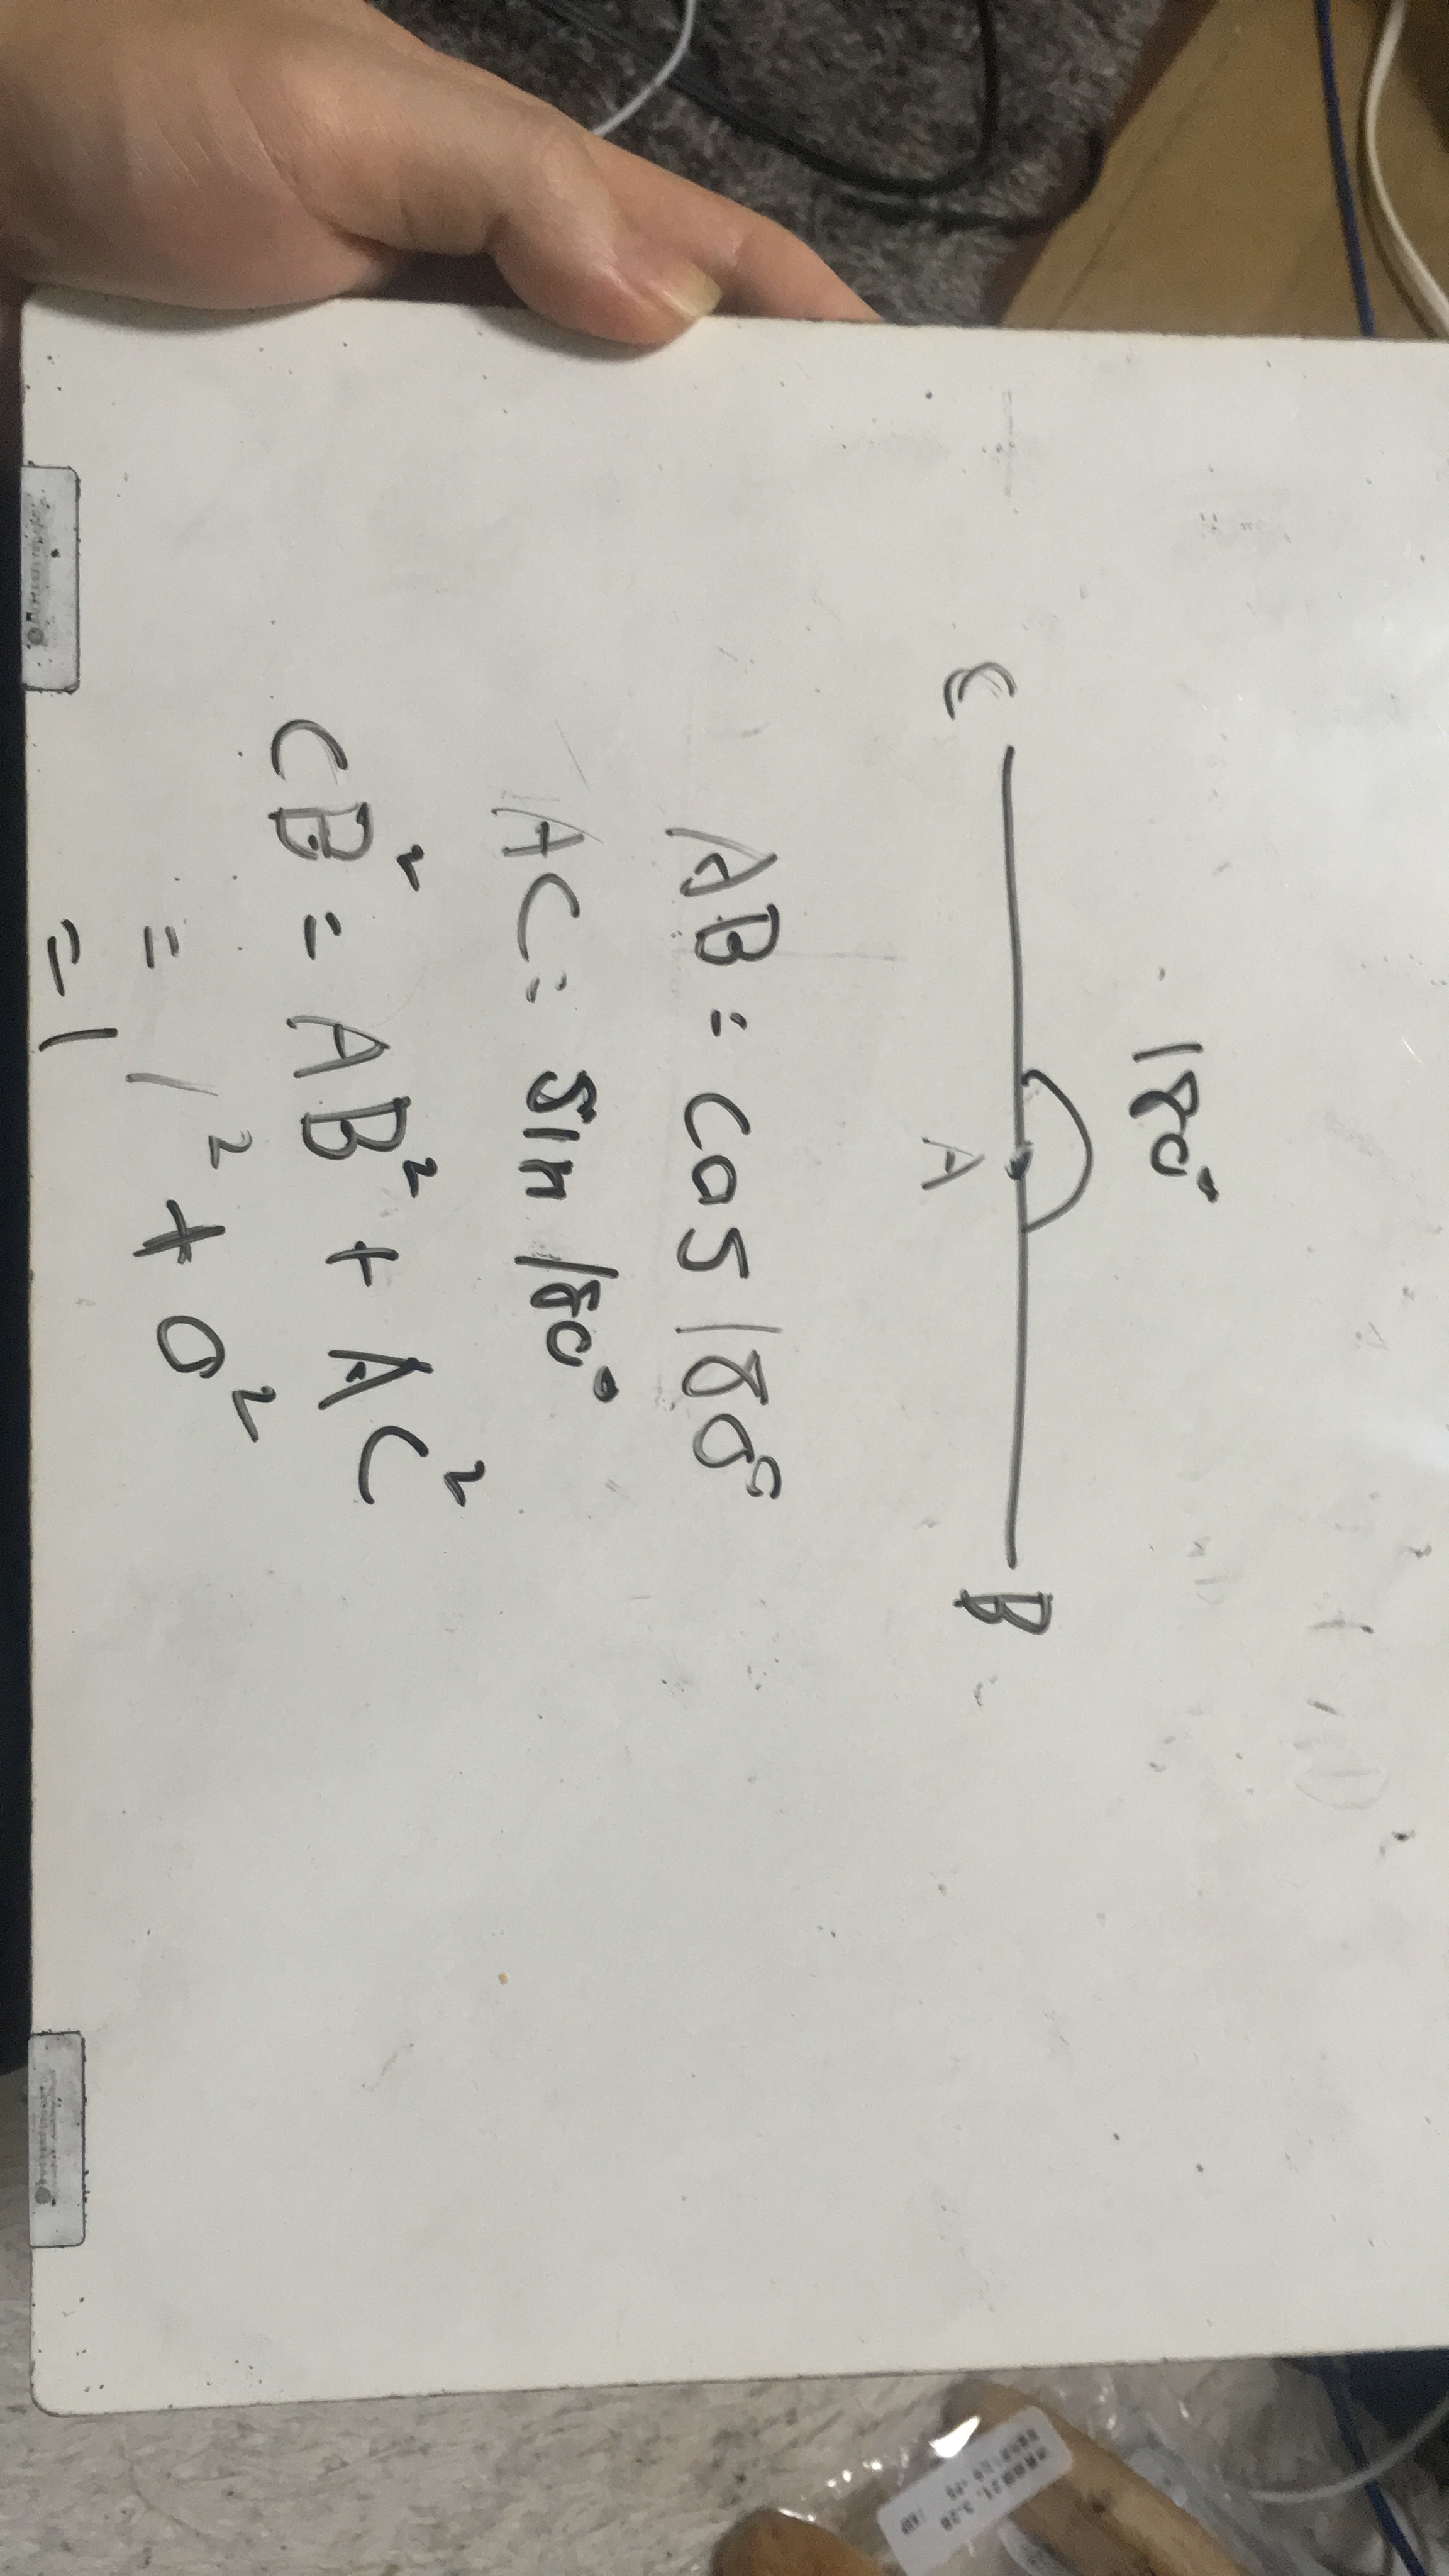 180°
C A B
AB = cos 180°
AC = sin 180°
CB² = AB² + AC²
= 1² + 0²
= 1